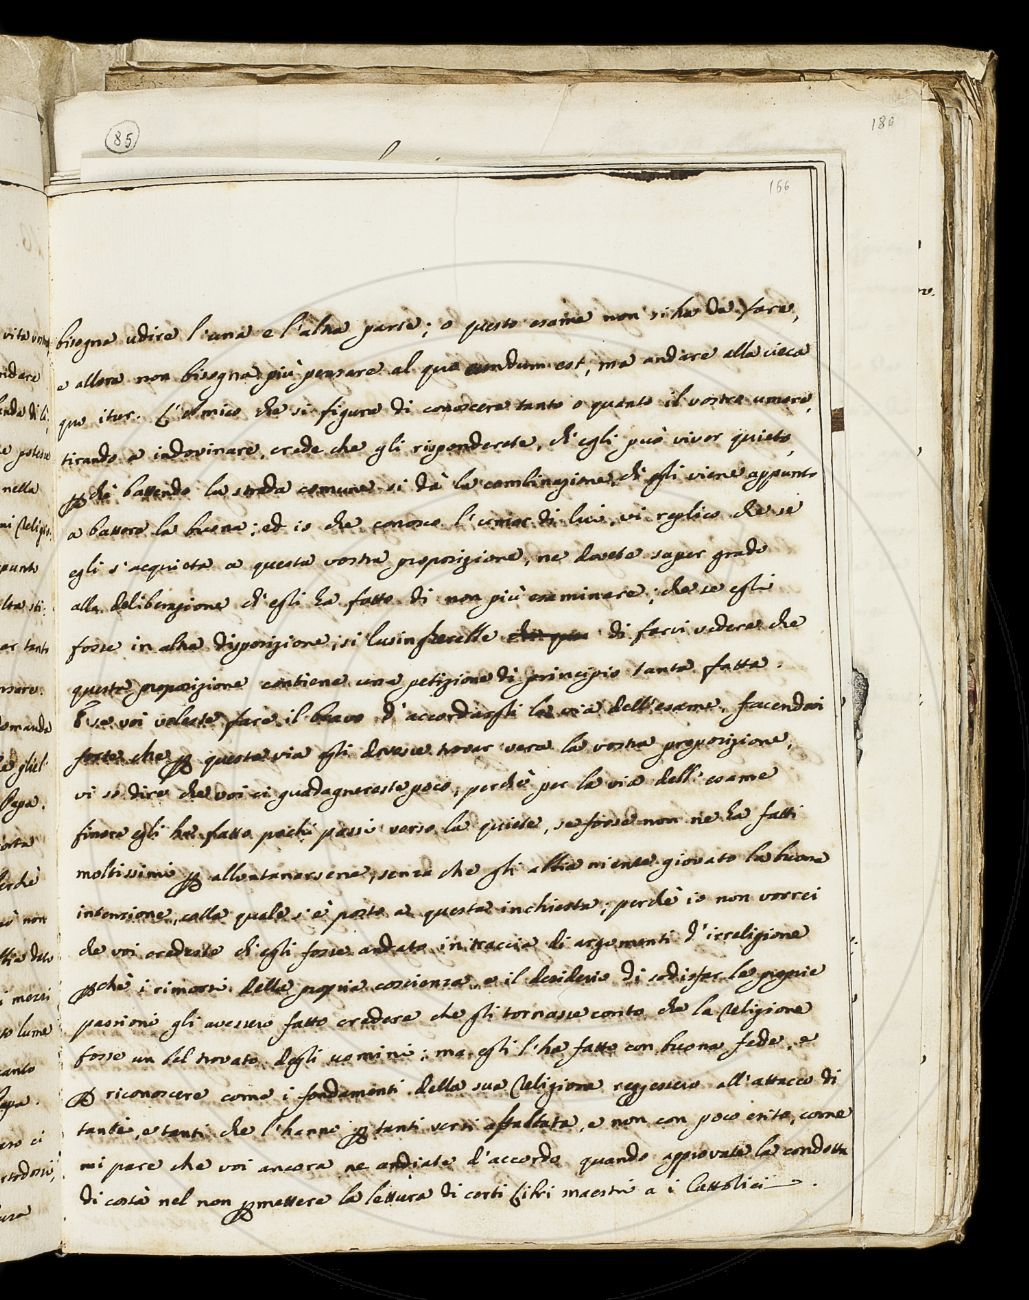 85
180
166
bisogna udire l'una e l'altra parte; o questo esame non si ha da fare,
e allora non bisogna più pensare al qua eundum est, ma andare alla cieca
qua itur. L'amico che si figura di conoscere tanto o quanto il vostro umore,
tirando a indovinare, crede che gli risponderete, ch'egli può viver quieto,
ꝑchè battendo la strada comune si dà la combinazione ch'egli viene appunto
a battere la buona; ed io che conosco l'umor di lui, vi replico che se
egli s'acquieta a questa vostra proposizione, ne dovete saper grado
alla deliberazione ch'egli ha fatto di non più esaminare; che se egli
fosse in altra disposizione, si lusingherebbe di farvi vedere che
questa proposizione contiene una petizione di principio tanta fatta.
E se voi voleste fare il bravo d'accordargli la via dell'esame, facendovi
forte che ꝑ questa via egli dovesse trovar vera la vostra proposizione,
vi so dire che voi ci guadagnereste poco, perchè per la via dell'esame
finora egli ha fatto pochi passi verso la quiete, se forse non ne ha fatti
moltissimi ꝑ allontanarsene, senza che gli abbia niente giovato la buona
intenzione, colla quale s'è posto a questa inchiesta; perchè io non vorrei
che voi credeste ch'egli fosse andato in traccia di argomenti d'irreligione
ꝑchè i rimorsi della propria coscienza, e il desiderio di sodisfar le proprie
passioni gli avessero fatto credere che gli tornasse conto che la Religione
fosse un bel trovato degli uomini; ma egli l'ha fatto con buona fede, e
ꝑ riconoscere come i fondamenti della sua Religione reggessero all'attacco di
tanti, e tanti che l'hanno ꝑ tanti versi assaltata, e non con poco esito, come
mi pare che voi ancora ne andiate d'accordo quando approvate la condotta
di costà nel non ꝑmettere la lettura di certi Libri maestri a i Cattolici.